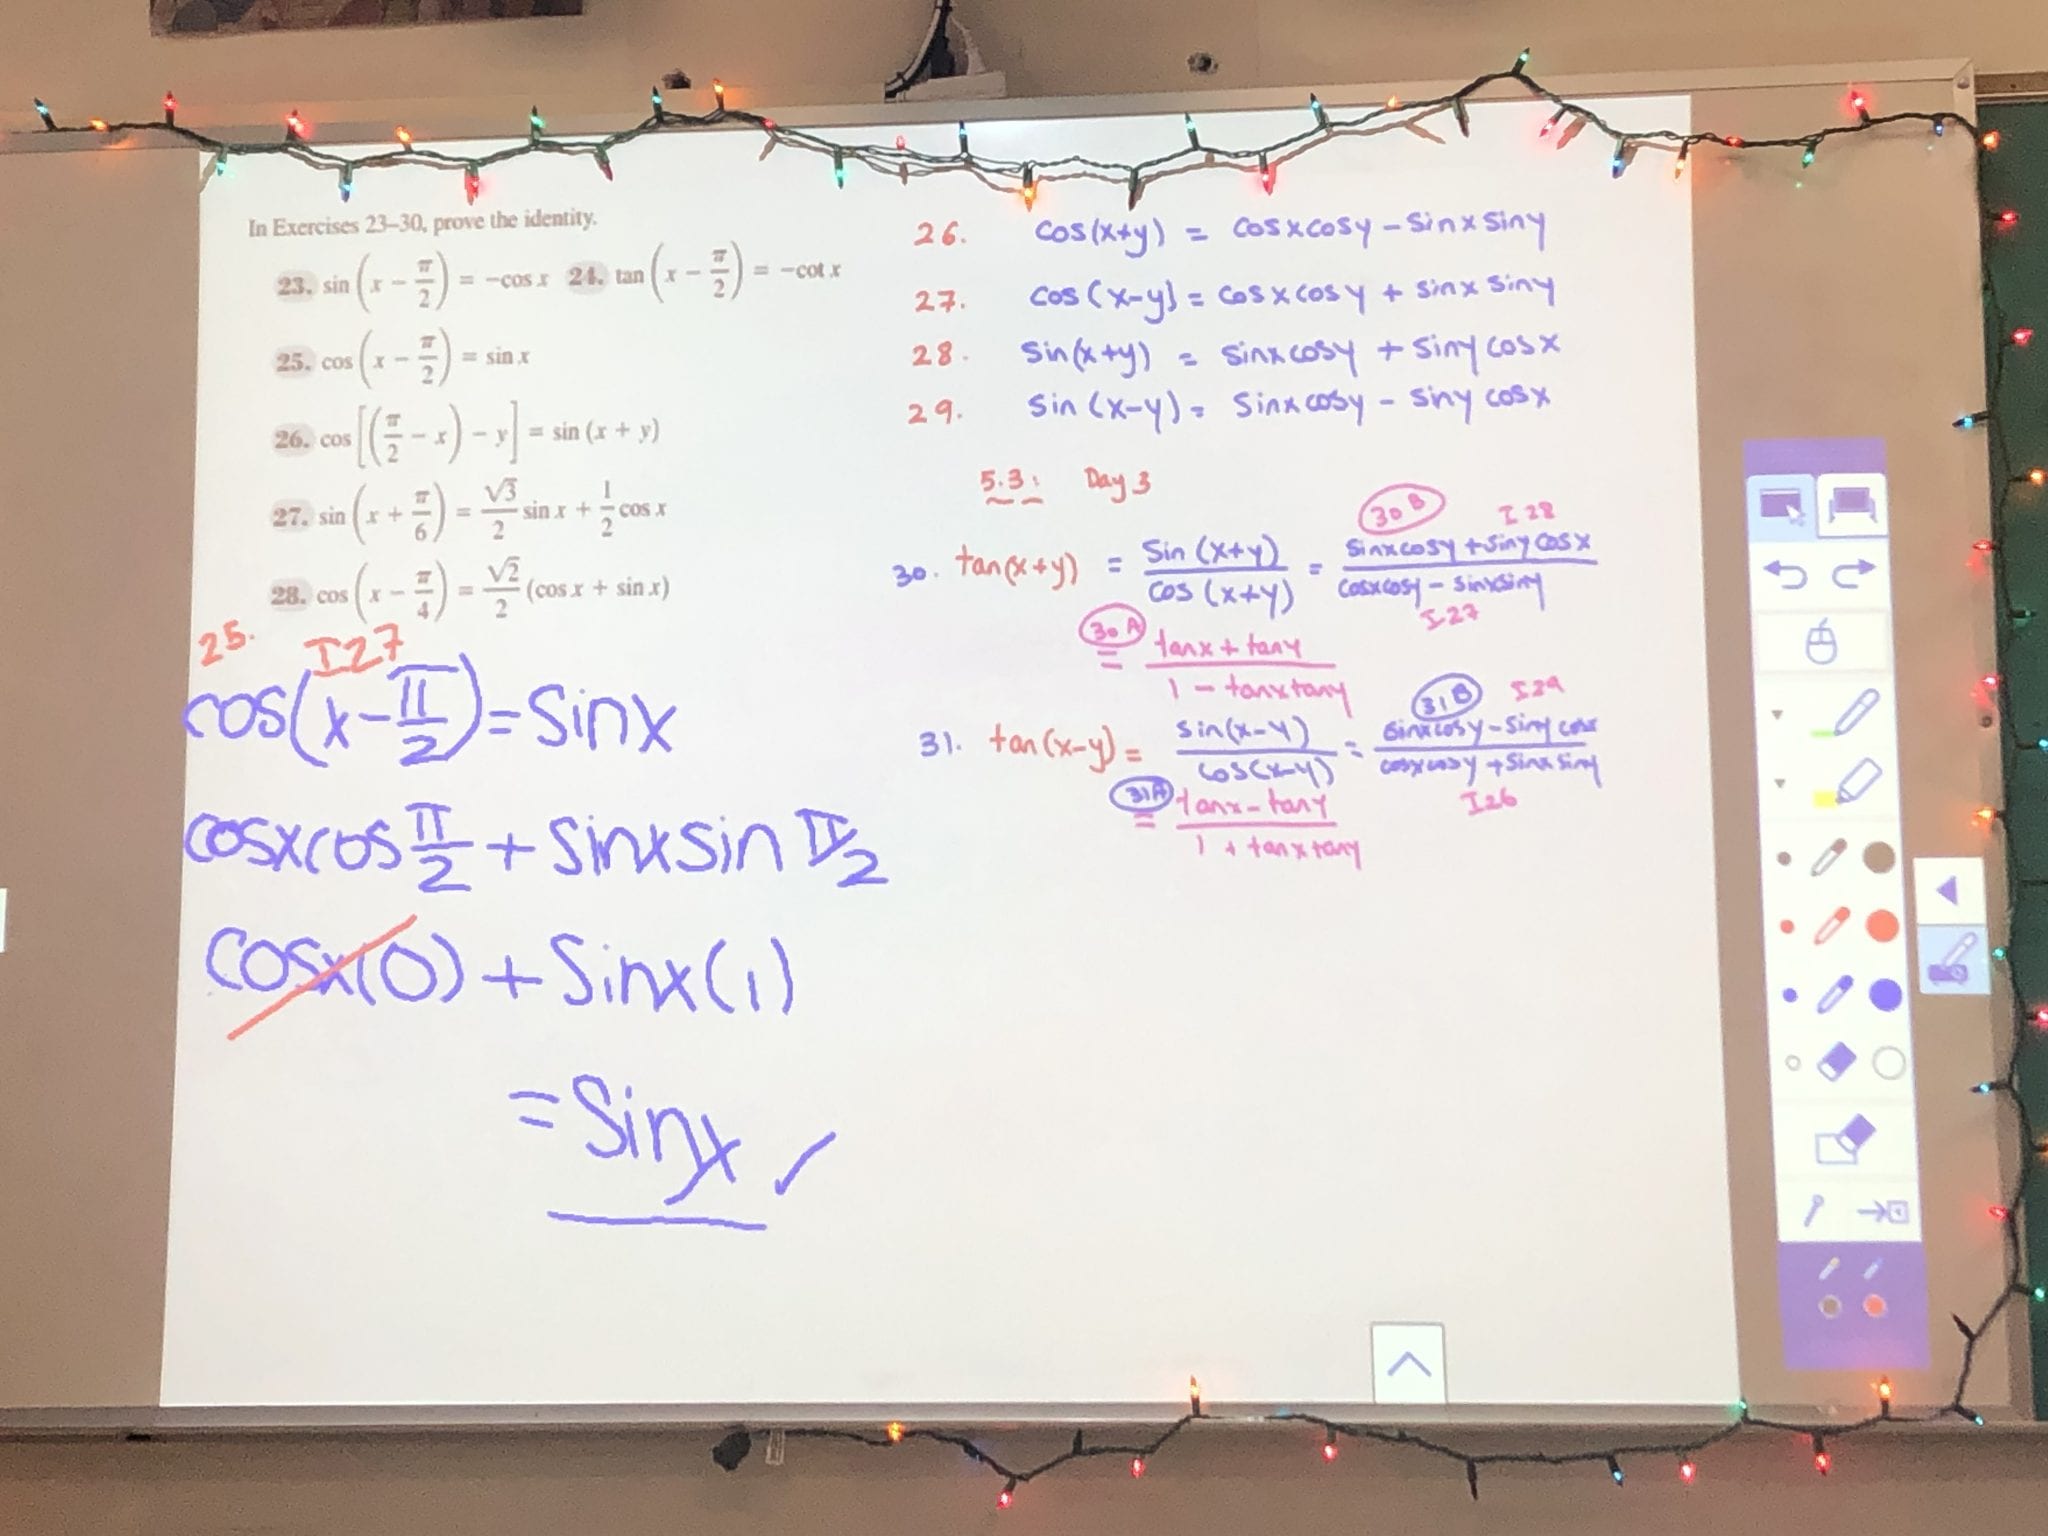 In Exercises 23–30, prove the identity.
23. sin (x − π/2) = −cos x 24. tan (x − π/2) = −cot x
25. cos (x − π/2) = sin x
26. cos [(π/2 − x) − y] = sin (x + y)
27. sin (x + π/6) = √3/2 sin x + 1/2 cos x
28. cos (x − π/4) = √2/2 (cos x + sin x)
25. I27
cos(x−π/2)=sinx
cosxcosπ/2+sinxsinπ/2
cosx(0)+sinx(1)
=sinx ✓
26. cos(x+y) = cosxcosy − sinxsiny
27. cos(x−y) = cosxcosy + sinxsiny
28. sin(x+y) = sinxcosy + sinycosx
29. sin(x−y) = sinxcosy − sinycosx
5.3: Day 3
30B I28
30. tan(x+y) = sin(x+y)/cos(x+y) = sinxcosy+sinycosx/cosxcosy−sinxsiny
I27
30A = tanx+tany/1−tanxtany
31B I29
31. tan(x−y) = sin(x−y)/cos(x−y) = sinxcosy−sinycosx/cosxcosy+sinxsiny
I26
31A = tanx−tany/1+tanxtany